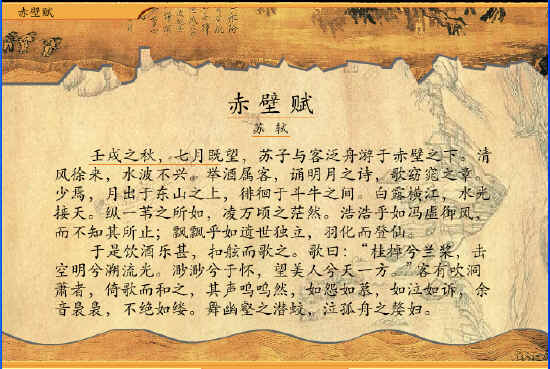 赤壁赋
赤壁赋
苏 轼
壬戌之秋，七月既望，苏子与客泛舟游于赤壁之下。清
风徐来，水波不兴。举酒属客，诵明月之诗，歌窈窕之章。
少焉，月出于东山之上，徘徊于斗牛之间。白露横江，水光
接天。纵一苇之所如，凌万顷之茫然。浩浩乎如冯虚御风，
而不知其所止；飘飘乎如遗世独立，羽化而登仙。
于是饮酒乐甚，扣舷而歌之。歌曰：“桂棹兮兰桨，击
空明兮溯流光。渺渺兮于怀，望美人兮天一方。”客有吹洞
萧者，倚歌而和之，其声呜呜然，如怨如慕，如泣如诉，余
音袅袅，不绝如缕。舞幽壑之潜蛟，泣孤舟之嫠妇。